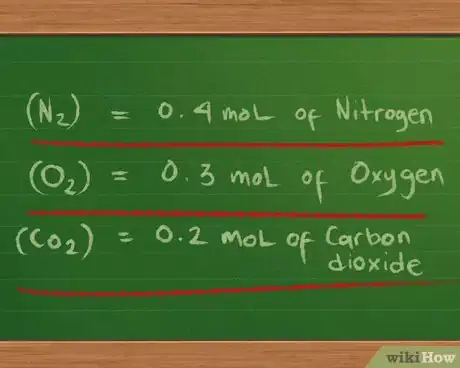 (N₂) = 0.4 moL of Nitrogen
(O₂) = 0.3 moL of Oxygen
(Co₂) = 0.2 moL of Carbon
dioxide
wikiHow